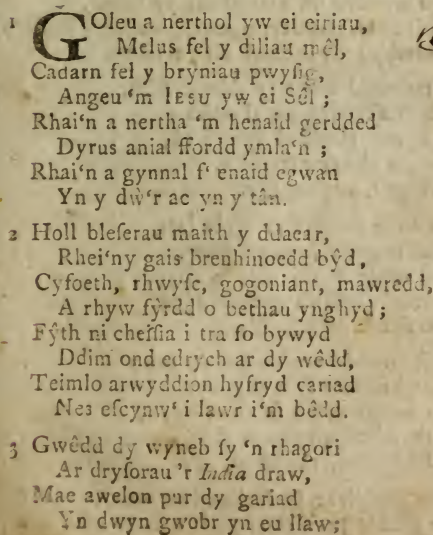 1 GOleu a nerthol yw ei eiriau,
Melus fel y diliau mêl,
Cadarn fel y bryniau pwyſig,
Angeu 'm IESU yw ei Sêl ;
Rhai'n a nertha 'm henaid gerdded
Dyrus anial ffordd ymla'n ;
Rhai'n a gynnal f' enaid egwan
Yn y dẁ'r ac yn y tân.
2 Holl bleſerau maith y ddaear,
Rhei'ny gais brenhinoedd bŷd,
Cyfoeth, rhwyſc, gogoniant, mawredd,
A rhyw fŷrdd o bethau ynghyd ;
Fŷth ni cheiſſia i tra fo bywyd
Ddim ond edrych ar dy wêdd,
Teimlo arwyddion hyfryd cariad
Nes eſcynw' i lawr i'm bêdd.
3 Gwêdd dy wyneb ſy 'n rhagori
Ar dryſorau 'r India draw,
Mae awelon pur dy gariad
Yn dwyn gwobr yn eu llaw;